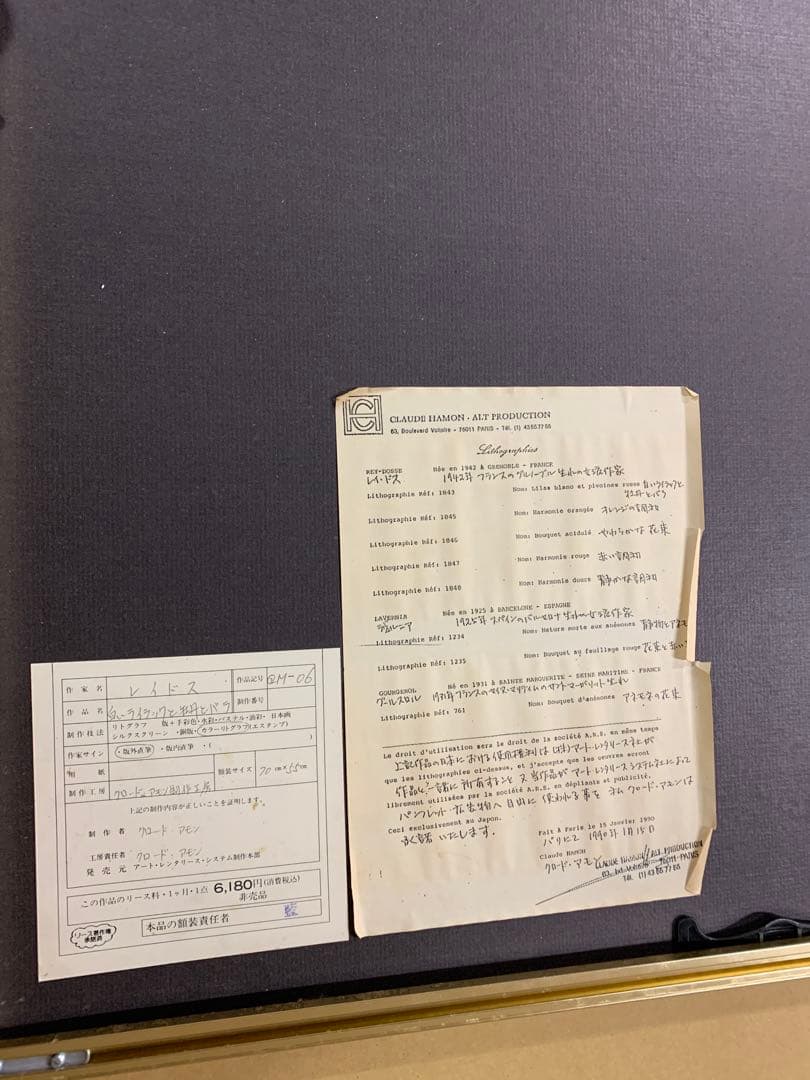 CLAUDE HAMON • ALT PRODUCTION
63, Boulevard Voltaire • 75011 PARIS • Tél. (1) 43557766
Lithographies
REY-DOSSE Née en 1942 à GRENOBLE - FRANCE
レイ・ドス 1942年 フランスのグルノーブル生れの女流作家
Lithographie Réf: 1843 Nom: Lilas blanc et pivoines roses 白いライラックと
牡丹とバラ
Lithographie Réf: 1845 Nom: Harmonie orangée オレンジの調和
Lithographie Réf: 1846 Nom: Bouquet acidulé やわらかな花束
Lithographie Réf: 1847 Nom: Harmonie rouge 赤い調和
Lithographie Réf: 1848 Nom: Harmonie douce 静かな調和
LAVERNIA Née en 1925 à BARCELONE - ESPAGNE
ラベルニア 1925年 スペインのバルセロナ生れの女流作家
Lithographie Réf: 1234 Nom: Nature morte aux anémones 静物とアネモネ
Lithographie Réf: 1235 Nom: Bouquet au feuillage rouge 花束と赤い
GOURGEROL Né en 1931 à SAINTE MARGUERITE - SEINE MARITIME - FRANCE
1931年フランスの 生れ
Lithographie Réf: 761 Nom: Bouquet d'anémones アネモネの花束
Le droit d'utilisation sera le droit de la société A.R.S. en même temps
上記作品の日本における使用権利は(株)アートレンタリース社が
que les lithographies ci-dessus, et j'accepte que les oeuvres soient
作品と一諸に所有すること 又当作品がアートレンタリースシステムによって
librement utilisées par la société A.R.S. en dépliants et publicité.
パンフレット・広告物へ自由に使われる事を 私クロード・アモンは
Ceci exclusivement au Japon.
承諾いたします。
Fait à Paris le 15 Janvier 1990
パリにて 1990年1月15日
Claude HAMON
クロード・アモン
CLAUDE HAMON ALT PRODUCTION
63, Bd Voltaire 75011 PARIS
Tél. (1) 43557766
作家名 レイドス 作品記号 QM-06
作品名 白いライラックと牡丹とバラ 制作番号
制作技法 リトグラフ 版+手彩色・水彩・パステル・油彩・日本画
シルクスクリーン・銅版・カラーリトグラフ(エスタンプ)
作家サイン ・版外直筆 ・版内直筆 ・( )
用紙 額装サイズ 70cm×55cm
制作工房 クロードアモン制作工房
上記の制作内容が正しいことを証明します。
制作者 クロード アモン
工房責任者 クロード・アモン
発売元 アート・レンタリース・システム制作本部
この作品のリース料・1ヶ月・1点 6,180円(消費税込)
非売品
リース著作権
承諾済
本品の額装責任者